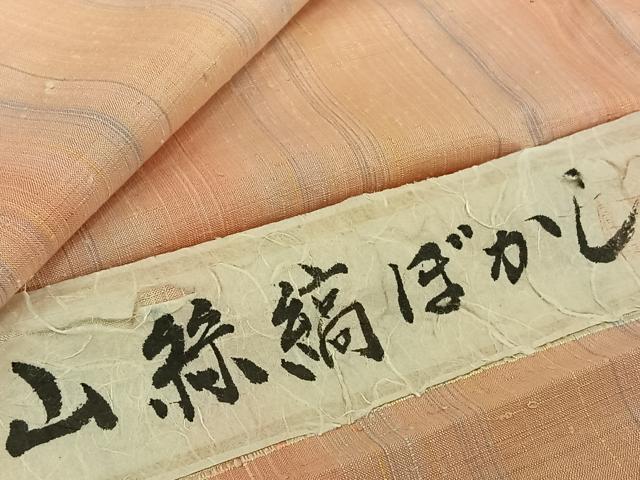 山絲縞ぼかし